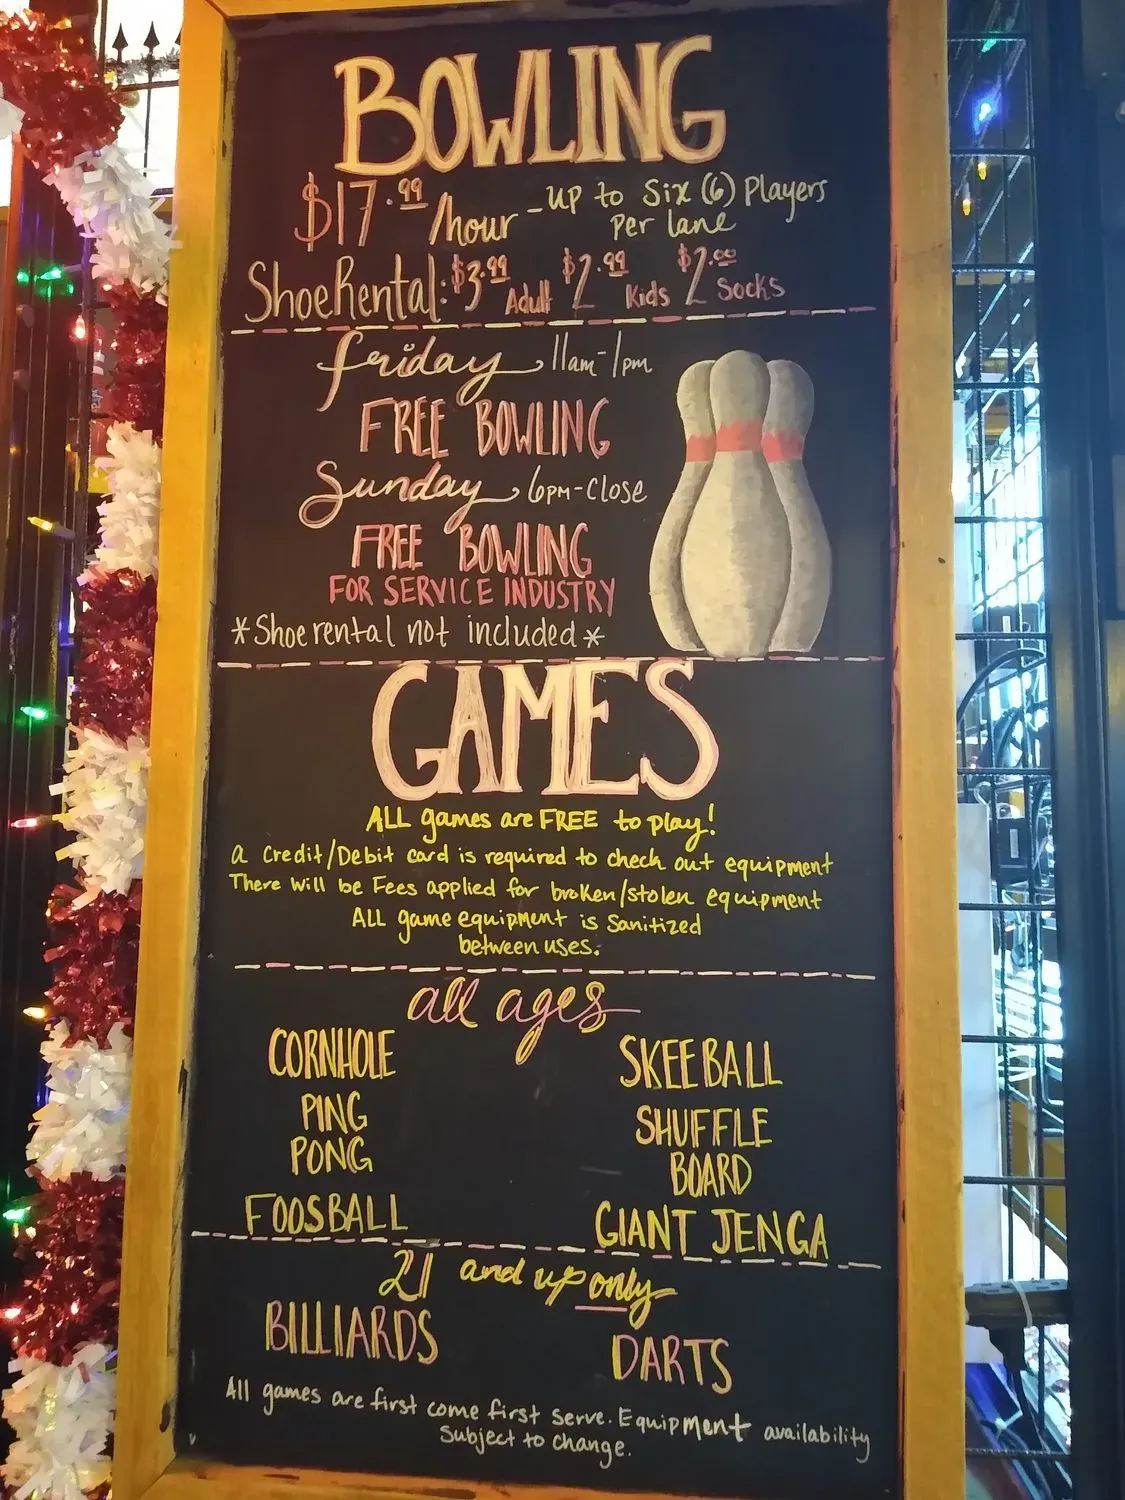 BOWLING
$17.99/hour - up to Six (6) Players
Per lane
Shoe Rental: $3.99 Adult $2.99 Kids $2.00 Socks
friday 11am-1pm
FREE BOWLING
Sunday 6pm-Close
FREE BOWLING
FOR SERVICE INDUSTRY
*Shoe rental not included*
GAMES
ALL games are FREE to play!
a Credit/Debit card is required to check out equipment
There will be Fees applied for broken/stolen equipment
ALL game equipment is Sanitized
between uses.
all ages
CORNHOLE
PING
PONG
FOOSBALL
SKEE BALL
SHUFFLE
BOARD
GIANT JENGA
21 and up only
BILLIARDS
DARTS
All games are first come first serve. Equipment availability
Subject to change.